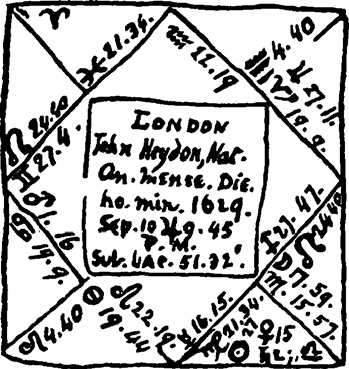 ♈
♓ 21.34.
♒ 22.19
4.40
♑ 27.11.
19.9.
♌ 24.40
♊ 27.4.
LONDON
John Heydon, Nat.
An. mense. Die.
ho. min. 1629.
Sep. 10 ♃ 9. 45
P. M.
Sub. Lat. 51.32'
♂ 1. 16
♋ 19.9.
27.47.
☊ 24.40
7.59.
15.57.
♌ 4.40
♌ 22.19
19.44
16.15.
♍ 21.34.
♀ 15
☉
♎